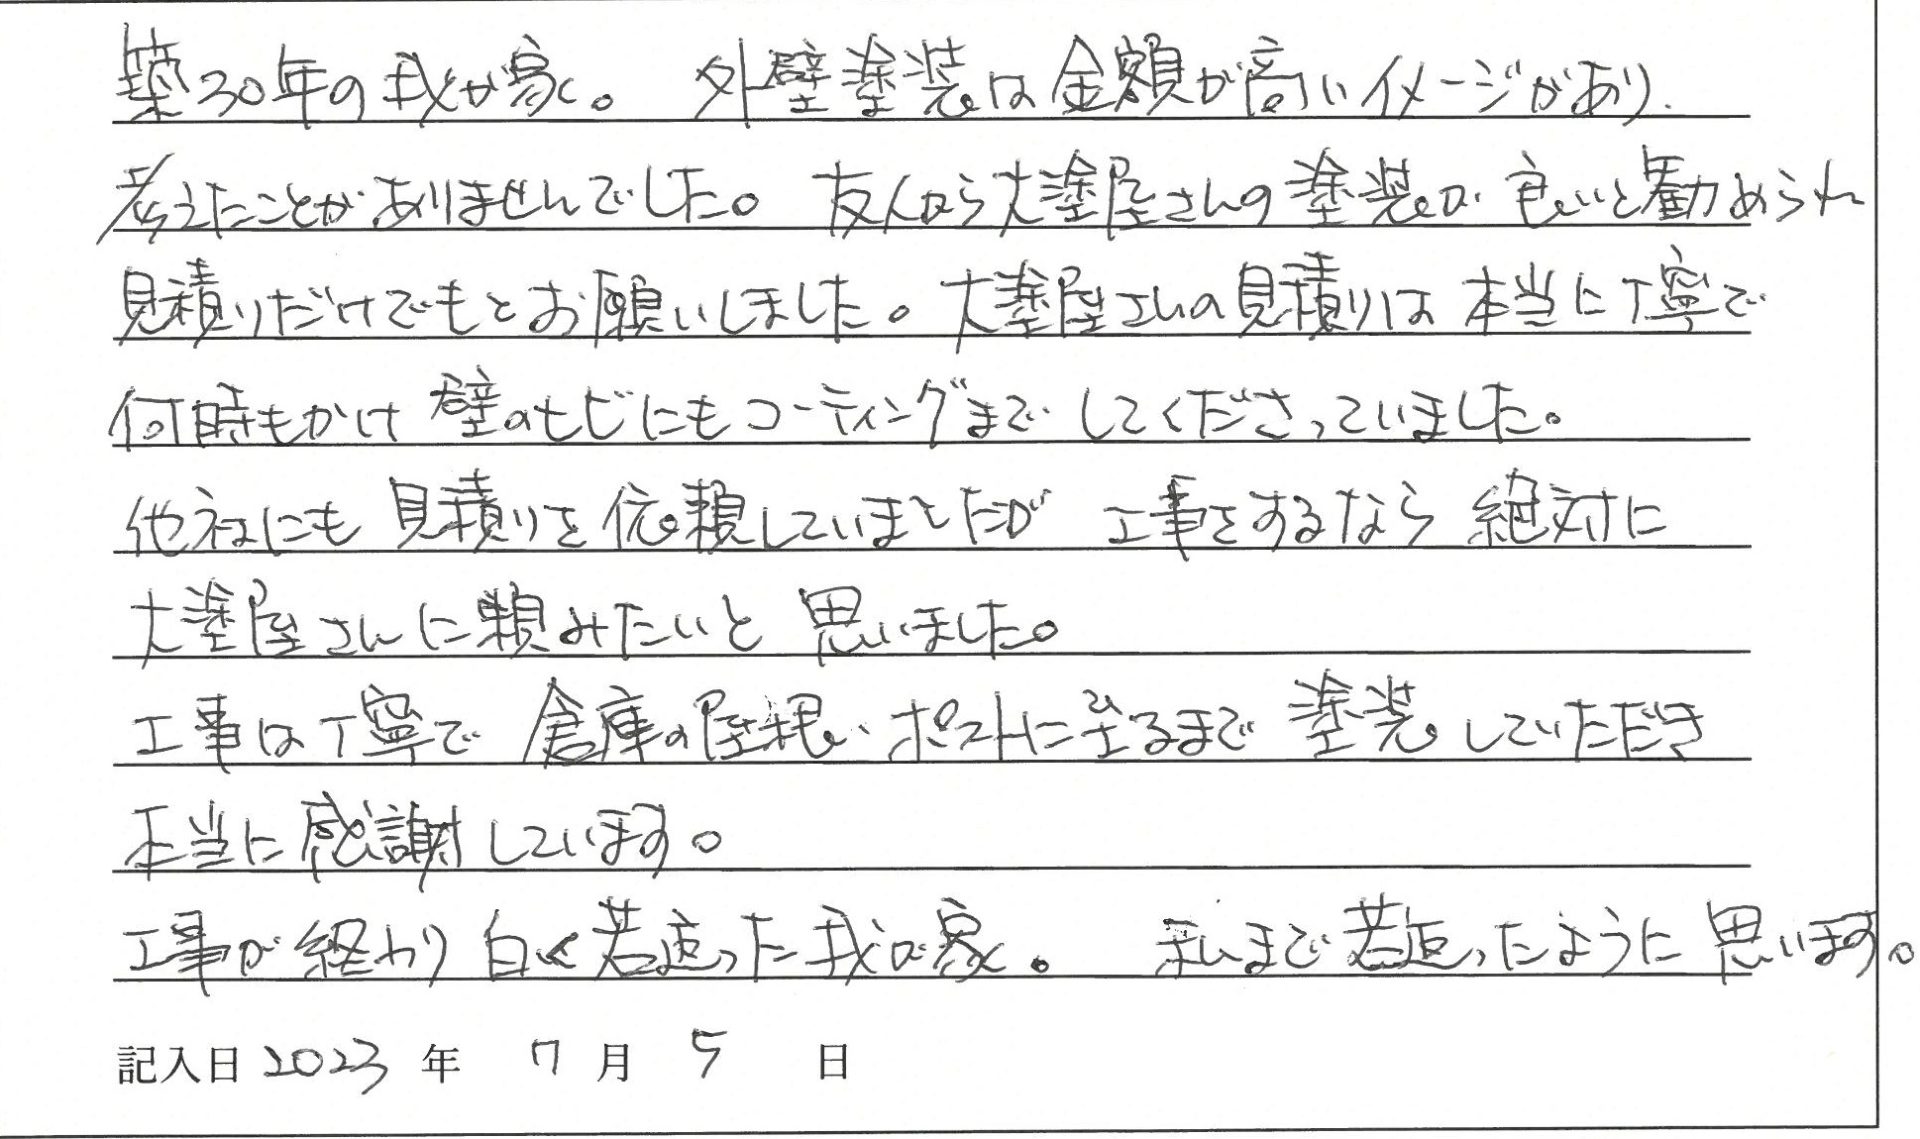 築30年の我が家。 外壁塗装は金額が高いイメージがあり、
考えたことがありませんでした。友人から大塗屋さんの塗装が良いと勧められ
見積りだけでもとお願いしました。大塗屋さんの見積りは本当に丁寧で
何時もかけ 壁のヒビにもコーティングまでしてくださっていました。
他社にも見積りを依頼していましたが 工事をするなら絶対に
大塗屋さんに頼みたいと思いました。
工事は丁寧で 倉庫の屋根、ポストに至るまで塗装していただき
本当に感謝しています。
工事が終わり 白く若返った我が家。 私まで若返ったように思います。
記入日 2023 年 7 月 5 日